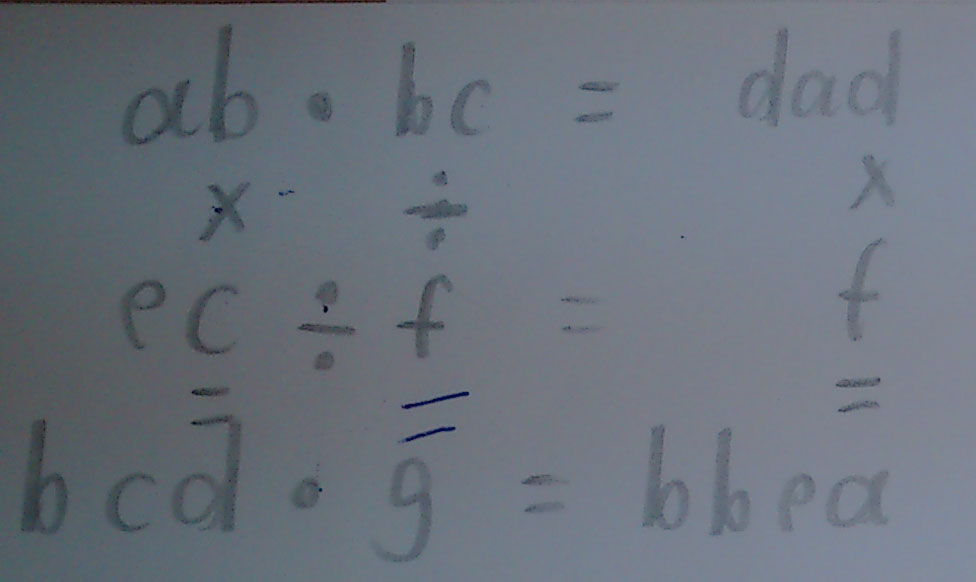 ab · bc = dad
x ÷ x
ec ÷ f = f
= = =
bcd · g = bbea